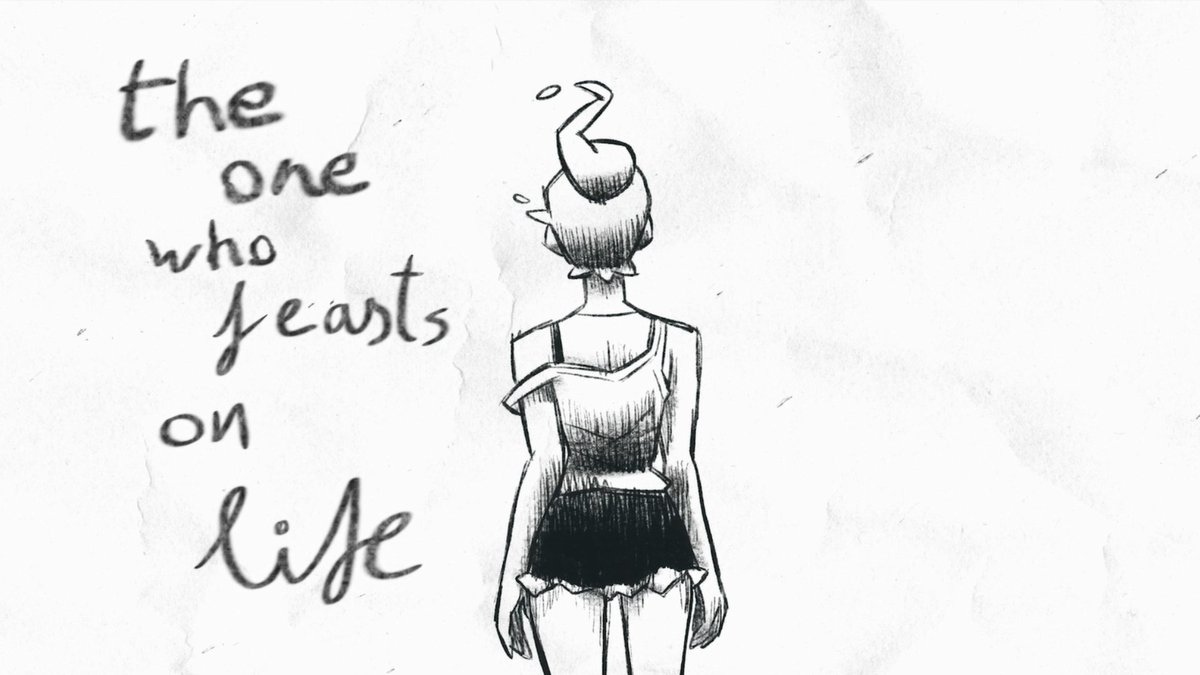 the
one
who
feasts
on
life